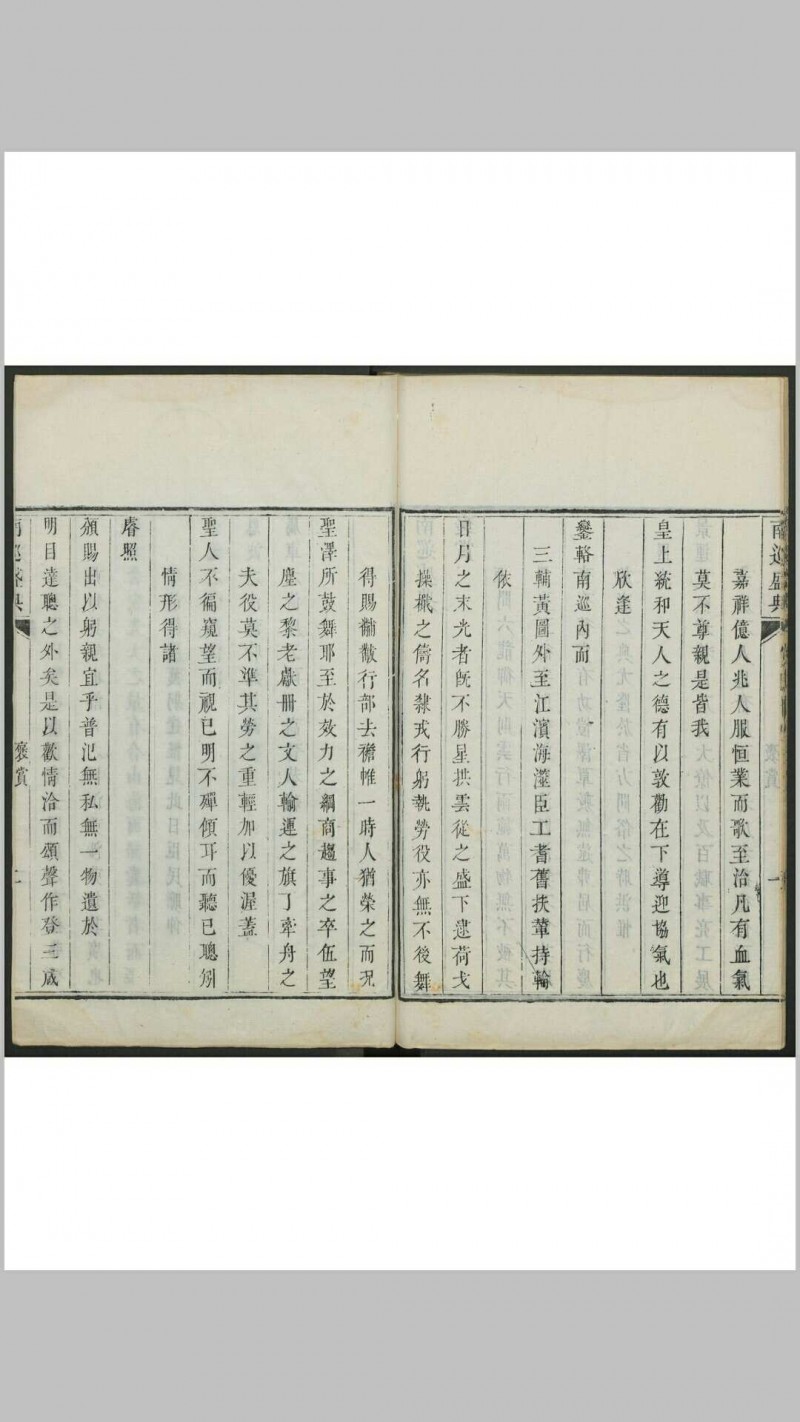 南巡盛典
褒賞
一
嘉祥億人兆人服恒業而歌至治凡有血氣
莫不尊親是皆我
皇上統和天人之德有以敦勸在下導迎協氣也
欣逢
鑾輅南巡內而
三輔黃圖外至江濱海澨臣工耆舊扶輦持輪
依
日月之末光者旣不勝星拱雲從之盛下逮荷戈
操檝之儔名隸戎行躬執勞役亦無不後舞
得賜黼黻行部去襜帷一時人猶榮之而況
聖澤所鼓舞耶至於效力之綱商趨事之卒伍望
塵之黎老獻冊之文人輸運之旗丁牽舟之
夫役莫不準其勞之重輕加以優渥蓋
聖人不徧窺望而視已明不殫傾耳而聽已聰矧
情形得諸
睿照
頒賜出以躬親宜乎普氾無私無一物遺於
明目達聰之外矣是以歡情洽而頌聲作登三咸
南巡盛典
褒賞
二